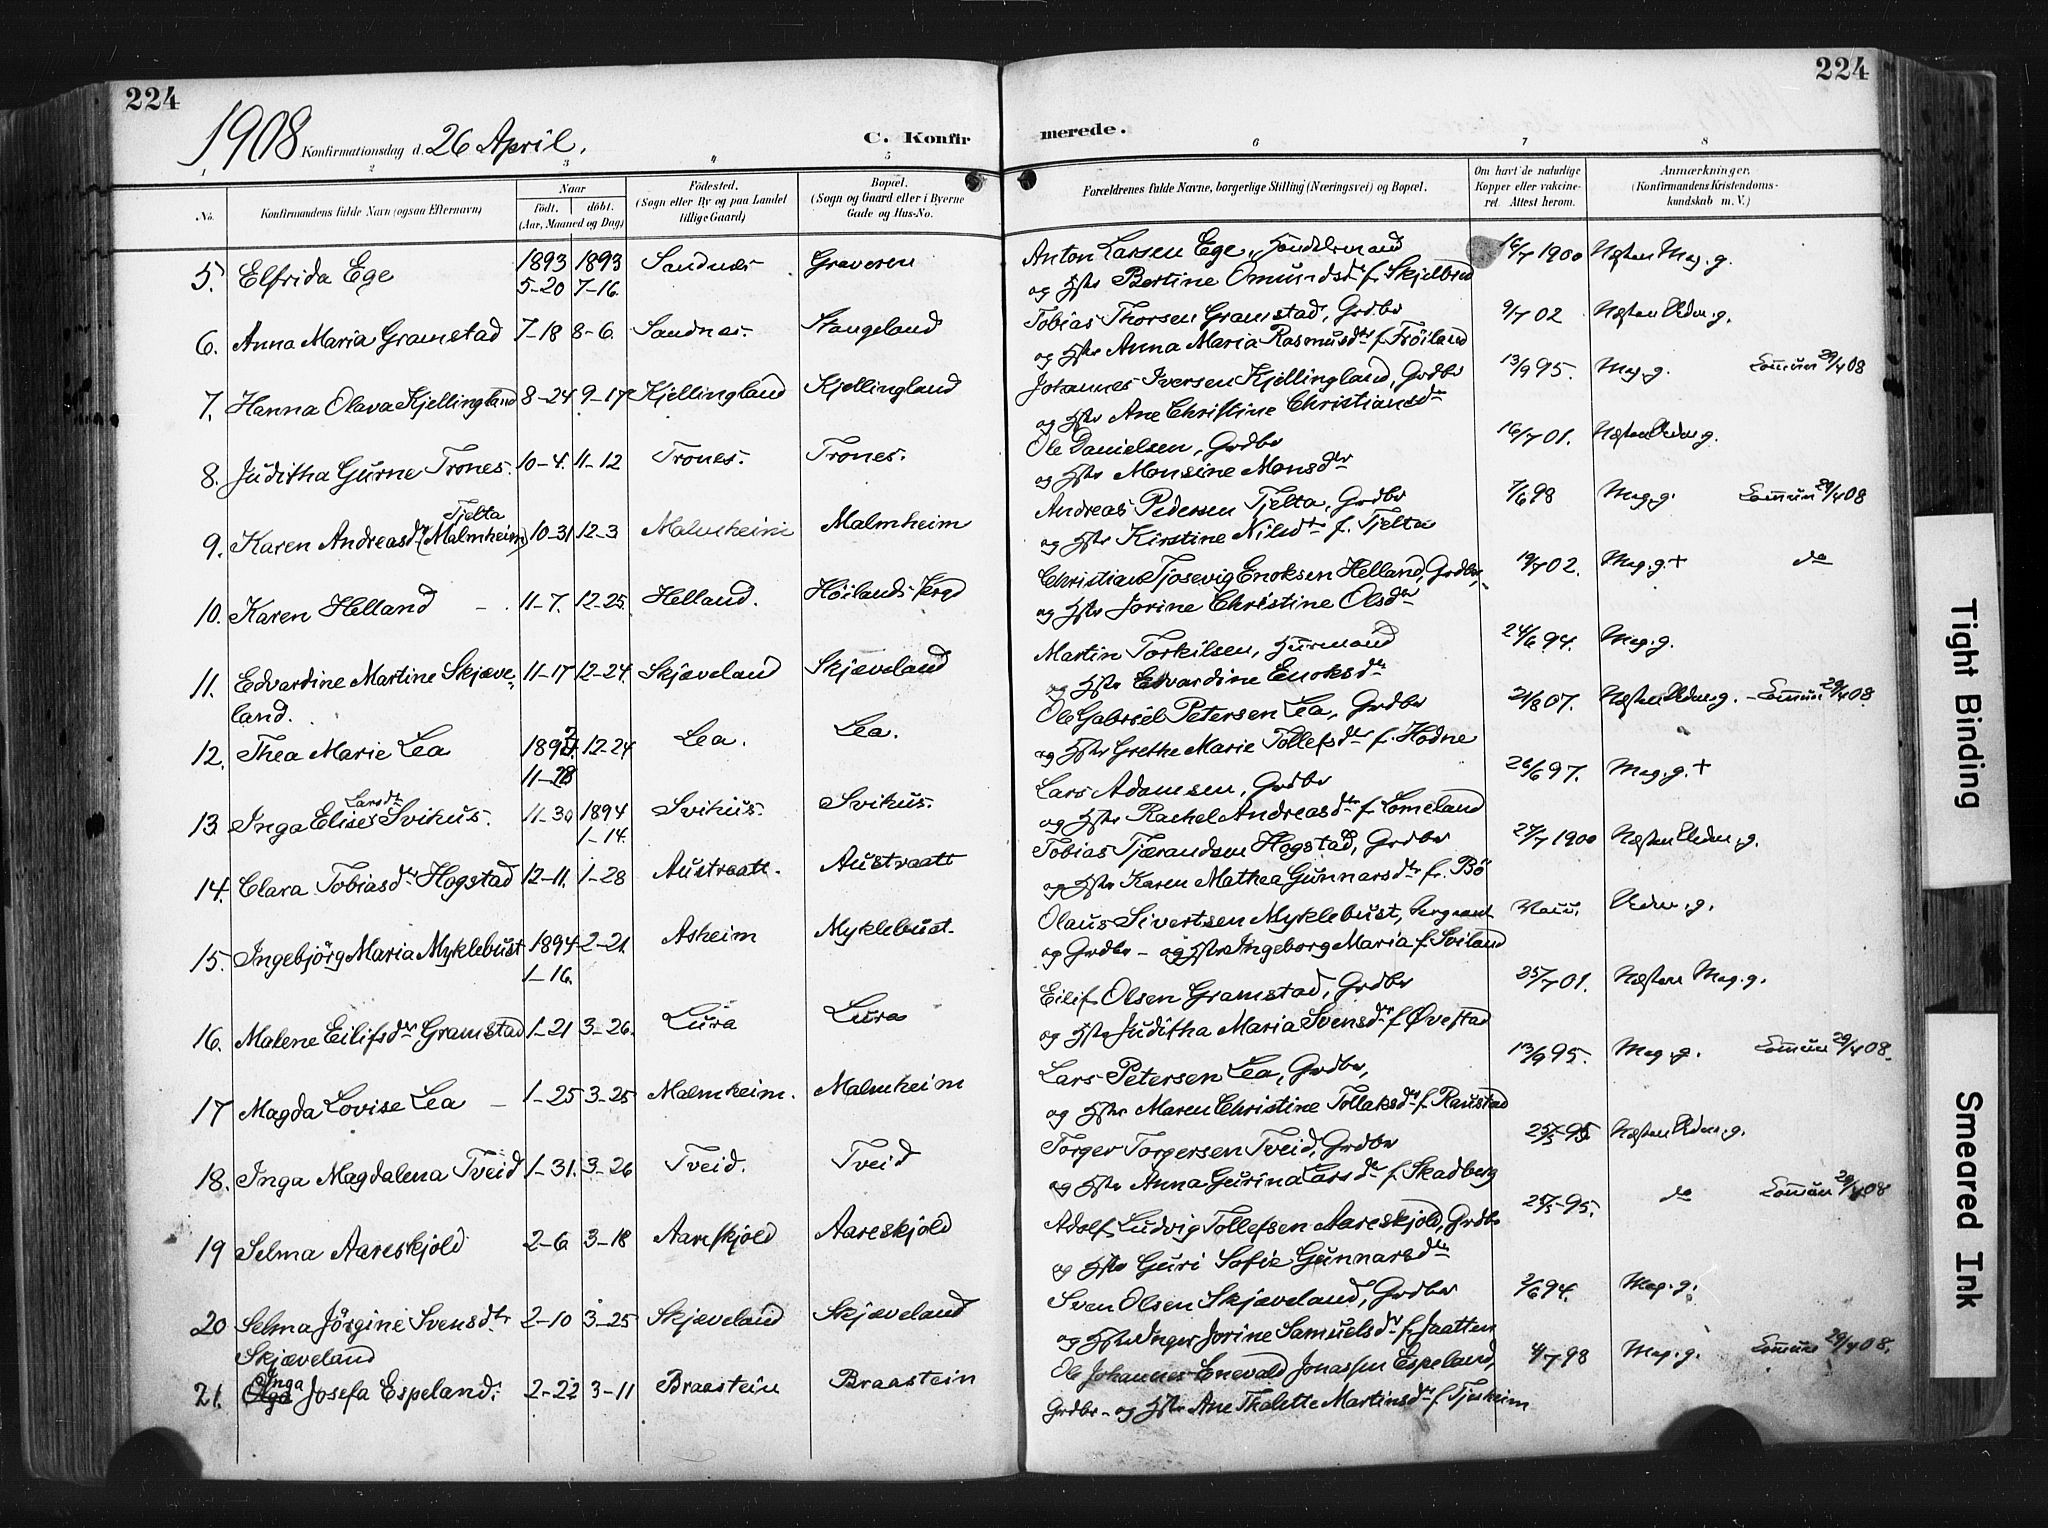 224
224
1908 Konfirmationsdag d. 26 April.
C. Konfir
merede.
1 2 3 4 5 6 7 8
No.
Konfirmandens fulde Navn (ogsaa Efternavn)
Naar
födt. döbt.
(Aar, Maaned og Dag)
Födested.
(Sogn eller By og paa Landet
tillige Gaard)
Bopæl.
(Sogn og Gaard eller i Byerne
Gade og Hus-No.
Forældrenes fulde Navne, borgerlige Stilling (Næringsvei) og Bopæl.
Om havt de naturlige
Kopper eller vakcine-
ret. Attest herom.
Anmærkninger.
(Konfirmandens Kristendoms-
kundskab m. V.)
5. Elfrida Ege 1893 5-20 1893 7-16. Sandnes Graveren
Anton Larsen Ege, Handelsmand
og Hstr Bertine Omundsdtr f. Skjelbred
16/7 1900 Næsten Meg. g.
6. Anna Maria Gramstad 7-18 8-6. Sandnes. Stangeland
Tobias Thorsen Gramstad, Grdbr
og Hstr Anna Maria Rasmusdtr f. Fröiland
9/7 02 Næsten Udm. g.
7. Hanna Olava Kjellingland 8-24 9-17 Kjellingland Kjellingland
Johannes Iversen Kjellingland, Grdbr
og Hstr Ane Christine Christiansdtr
13/9 95. Meg. g. Commun 29/4 08
8. Juditha Gurne Trones. 10-4. 11-12 Trones. Trones.
Ole Danielsen, Grdbr
og Hstr Monsine Monsdtr
16/7 01. Næsten Udm g.
Tjelta
9. Karen Andreasdtr (Malmheim) 10-31 12-3 Malmheim Malmheim
Andreas Pedersen Tjelta, Grdbr
og Hstr Kirstine Nilsdtr f. Tjelta
7/6 98 Meg. g. Commun 29/4 08
10. Karen Helland 11-7. 12-25. Helland. Höilands Prgd
Christian Tjosevig Enoksen Helland, Grdbr,
og Hstr Jorine Christine Olsdtr
19/7 02. Meg. g + do
11. Edvardine Martine Skjæve-
land. 11-17 12-24. Skjæveland Skjæveland
Martin Torkilsen, Husmand
og Hstr Edvardine Enoksdtr
24/6 94. Meg. g.
12. Thea Marie Lea 1893 11-28 12-24 Lea. Lea.
Ole Gabriel Petersen Lea, Grdbr
og Hstr Grethe Marie Tollefsdtr f. Hodne
21/8 07. Næsten Udm. g. - Commun 29/4 08
Larsdtr
13 Inga Elise Svihus. 11-30 1894 1-14. Svihus. Svihus.
Lars Adamsen, Grdbr
og Hstr Rachel Andreasdtr f. Lomeland
26/6 97. Meg. g. +
14. Clara Tobiasdtr Hogstad 12-11. 1-28 Austraatt. Austraatt
Tobias Tjærandsen Hogstad, Grdbr
og Hstr Karen Mathea Gunnarsdtr f. Bö
27/7 1900 Næsten Udm. g.
15. Ingebjörg Maria Myklebust 1894 1-16. 2-21. Asheim Myklebust.
Olaus Sivertsen Myklebust, Sergeant
og Grdbr - og Hstr Ingeborg Maria f. Sviland
Udm. g.
16. Malene Eilifsdtr Gramstad 1-21 3-26. Lura Lura
Eilif Olsen Gramstad, Grdbr
og Hstr Juditha Maria Svensdtr f Øvestad
25/7 01. Næsten Meg. g.
17 Magda Lovise Lea 1-25 3-25 Malmheim. Malmheim
Lars Petersen Lea, Grdbr,
og Hstr Maren Christine Tollaksdtr f. Raustad
13/9 95. Meg. g. Commun 29/4 08.
18. Inga Magdalena Tveid 1-31. 3-26 Tveid. Tveid
Torger Torgersen Tveid, Grdbr
og Hstr Anna Gurina Larsdtr f. Skadberg
25/5 95 Næsten Udm. g.
19 Selma Aareskjold 2-6. 3-18 Aareskjold Aareskjold
Adolf Ludvig Tollefsen Aareskjold, Grdbr
og Hstr Guri Sofie Gunnarsdtr
25/5 95. do Commun 29/4 08
20 Selma Jörgine Svensdtr
Skjæveland 2-10 3-25 Skjæveland Skjæveland
Sven Olsen Skjæveland, Grdbr
og Hstr Inger Jorine Samuelsdtr f. Jaatten
2/6 94. Meg. g.
Inga
21. Olga Josefa Espeland. 2-22 3-11 Braastein Braastein
Ole Johannes Enevald Jonassen Espeland,
Grdbr - og Hstr Ane Thalette Martinsdtr f. Tjesheim
4/7 98 Meg. g. Commun 29/4 08.
Tight Binding
Smeared Ink